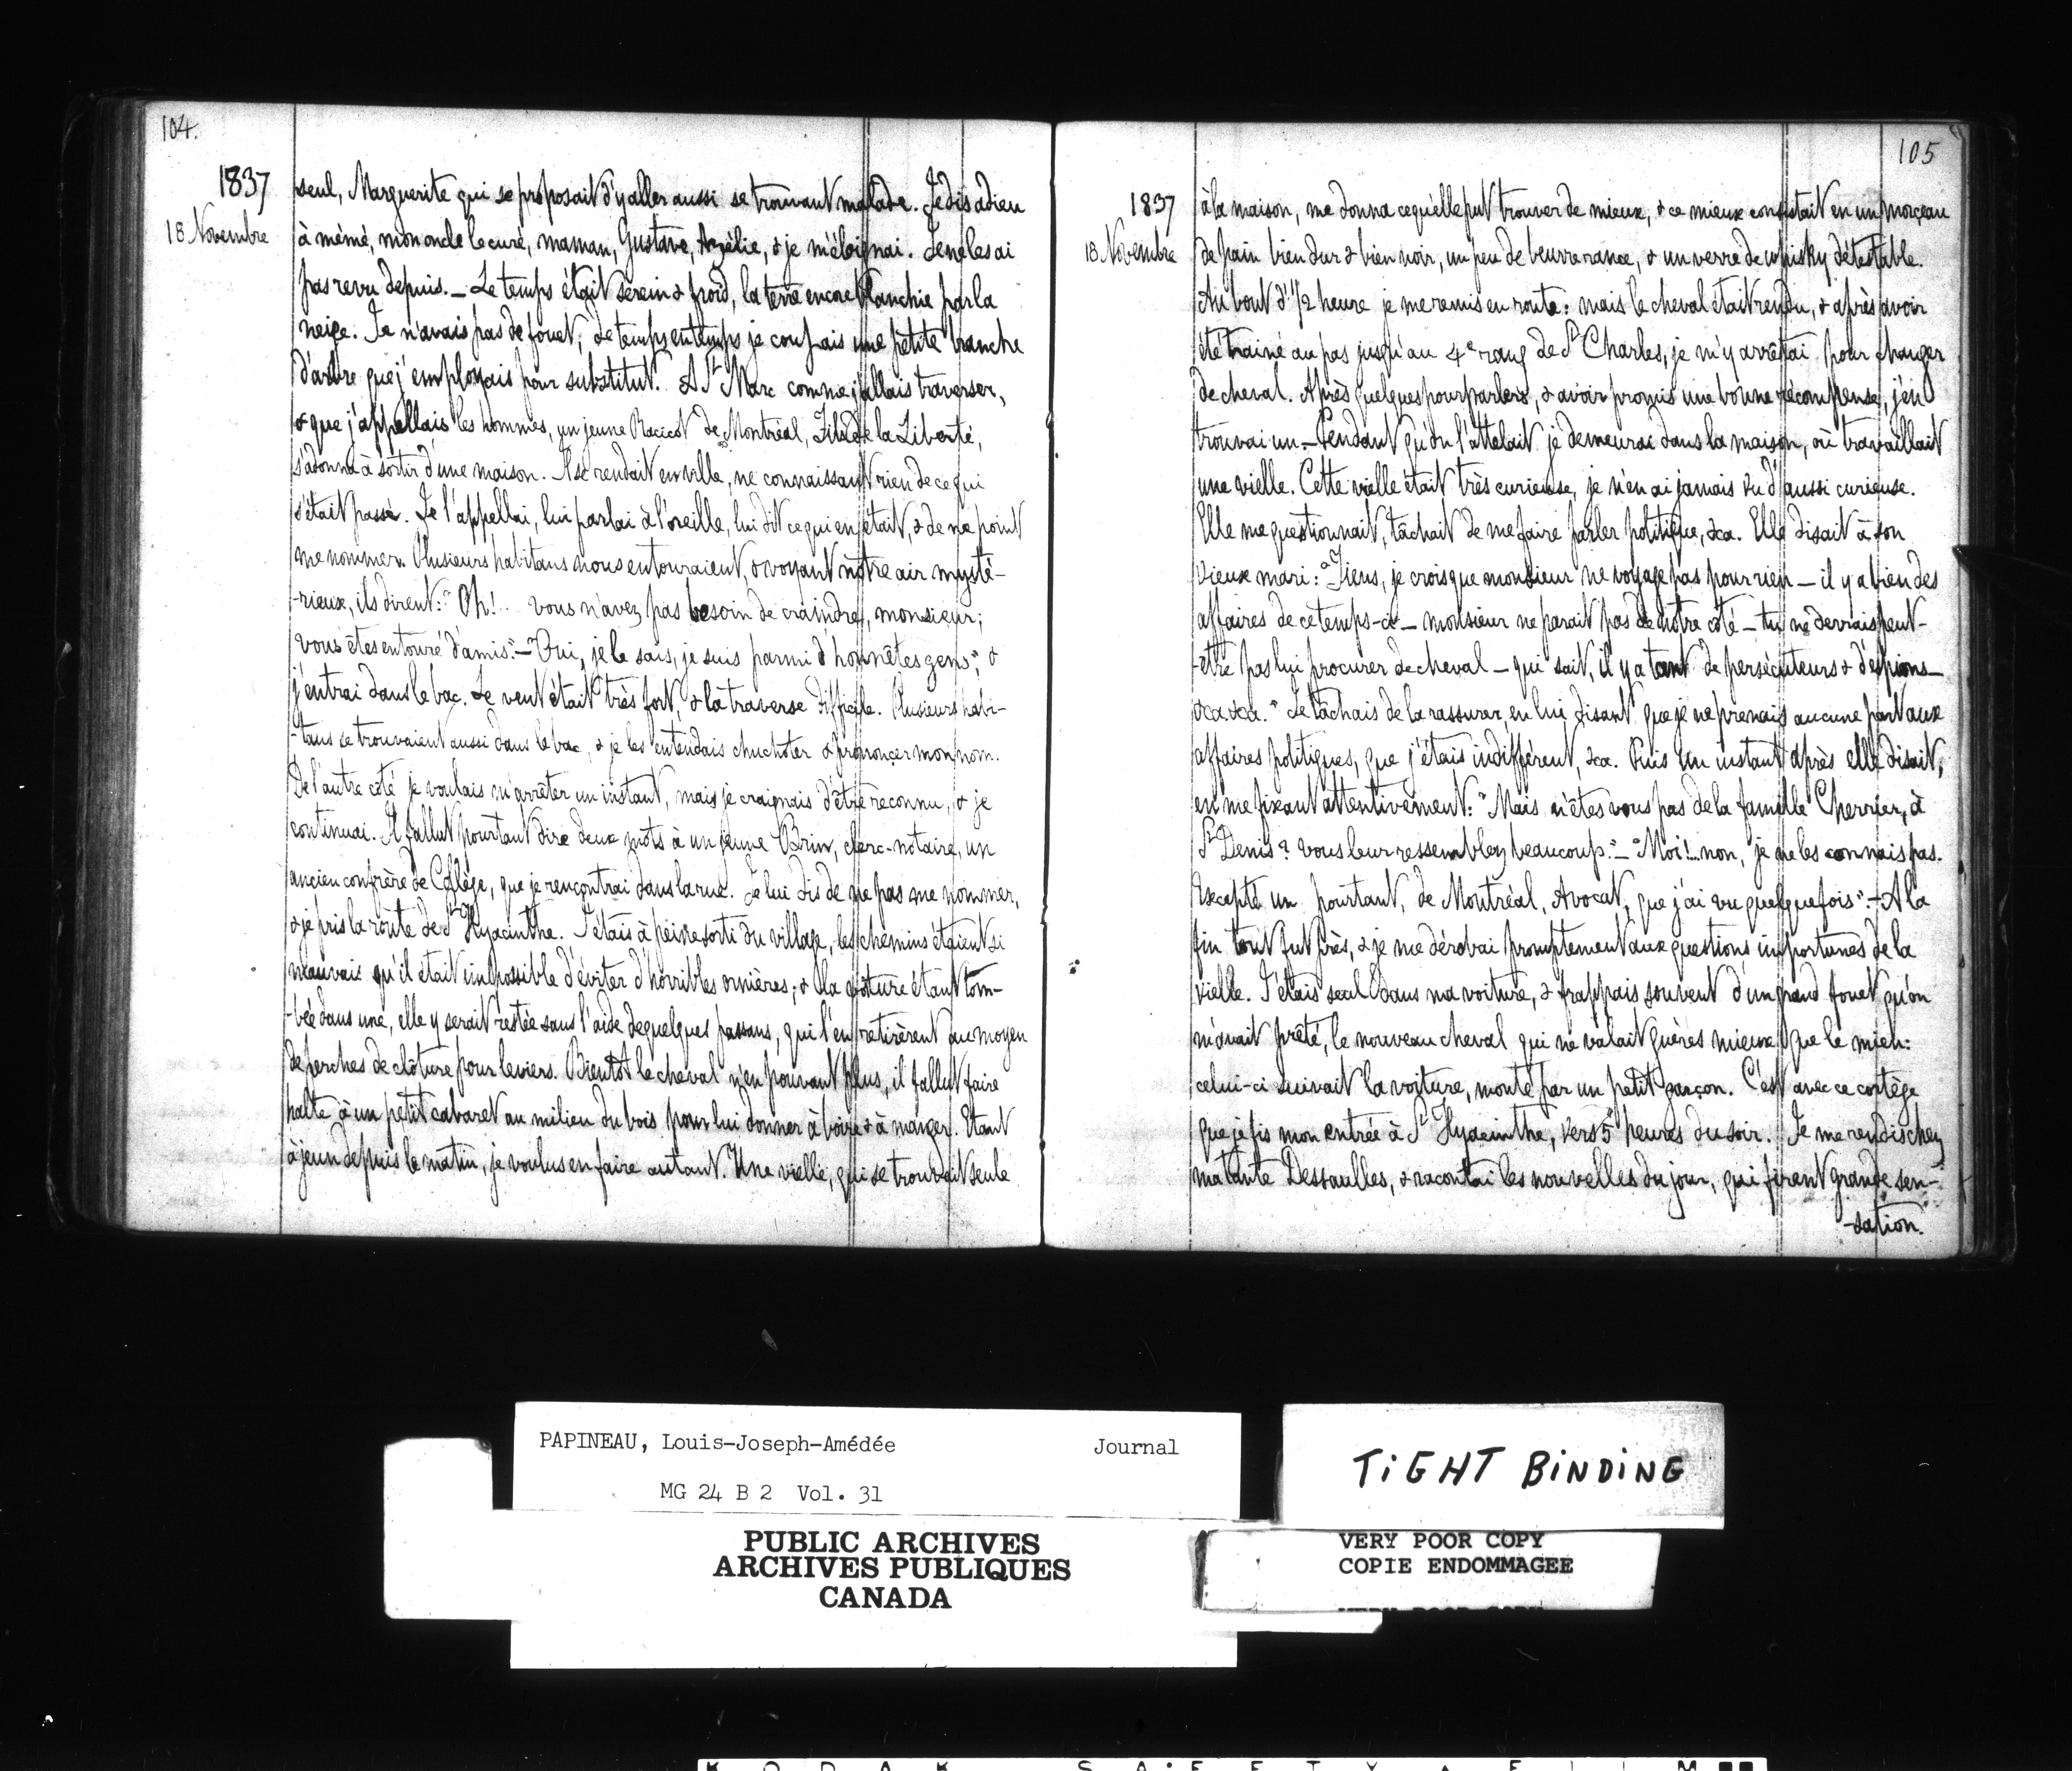 104.
1837
18 Novembre
seul, Marguerite qui se proposait d'y aller aussi se trouvant malade. Je dis adieu
à mémé, mon oncle le curé, maman, Gustave, Azélie, & je m'éloignai. Je ne les ai
pas revu depuis. _ Le temps était serein & froid, la terre encore blanchie par la
neige. Je n'avais pas de fouet; de temps en temps je coupais une petite branche
d'arbre que j'employais pour substitut. A St Marc comme j'allais traverser,
& que j'appellais les hommes, un jeune Racicot de Montréal, Fils de la Liberté,
s'adonna à sortir d'une maison. Il se rendait en ville, ne connaissant rien de ce qui
s'était passé. Je l'appellai, lui parlai à l'oreille, lui dit ce qui en était, & de ne point
me nommer. Plusieurs habitans nous entouraient, & voyant notre air mysté-
-rieux, ils dirent: "Oh!.. vous n'avez pas besoin de craindre, monsieur;
vous êtes entouré d'amis." _ "Oui, je le sais, je suis parmi d'honnêtes gens"; &
j'entrai dans le bac. Le vent était très fort, & la traverse difficile. Plusieurs habi-
-tans se trouvaient aussi dans le bac, & je les entendais chuchoter & prononcer mon nom.
De l'autre côté je voulais m'arrêter un instant, mais je craignais d'être reconnu, & je
continuai. Il fallut pourtant dire deux mots à un jeune Brin, clerc-notaire, un
ancien confrère de Collège, que je rencontrai dans la rue. Je lui dis de ne pas me nommer,
& je pris la route de St Hyacinthe. J'étais à peine sorti du village, les chemins étaient si
mauvais qu'il était impossible d'éviter d'horribles ornières; & la voiture étant tom-
-bée dans une, elle y serait restée sans l'aide de quelques passans, qui l'en retirèrent au moyen
de perches de clôture pour leviers. Bientôt le cheval n'en pouvant plus, il fallut faire
halte à un petit cabaret au milieu du bois pour lui donner à boire & à manger. Etant
à jeun depuis le matin, je voulus en faire autant. Une vielle, qui se trouvait seule
105
1837
18 Novembre
à la maison, me donna ce qu'elle put trouver de mieux, & ce mieux consistait en un morceau
de pain bien dur & bien noir, un peu de beurre rance, & un verre de whisky détestable.
Au bout d'1/2 heure je me remis en route: mais le cheval était rendu, & après avoir
été trainé au pas jusqu'au 4e rang de St Charles, je m'y arrêtai pour changer
de cheval. Après quelques pourparlers, & avoir promis une bonne récompense, j'en
trouvai un. _ Pendant qu'on l'attelait je demeurai dans la maison, où travaillait
une vielle. Cette vielle était très curieuse, je n'en ai jamais vu d'aussi curieuse.
Elle me questionnait, tâchait de me faire parler politique, &ca. Elle disait à son
vieux mari: "Tiens, je crois que monsieur ne voyage pas pour rien _ il y a bien des
affaires de ce temps-ci _ monsieur ne parait pas de notre côté _ tu ne devrais peut-
-être pas lui procurer de cheval _ qui sait, il y a tant de persécuteurs & d'espions _
&ca. &ca." Je tâchais de la rassurer, en lui disant que je ne prenais aucune part aux
affaires politiques, que j'étais indifférent, &ca. Puis un instant après elle disait,
en me fixant attentivement: "Mais n'êtes vous pas de la famille Cherrier, à
St Denis? vous leur ressemblez beaucoup." _ "Moi!.. non, je ne les connais pas.
Excepté un pourtant, de Montréal, Avocat, que j'ai vu quelquefois". _ A la
fin tout fut près, & je me dérobai promptement aux questions importunes de la
vielle. J'étais seul dans ma voiture, & frappais souvent d'un grand fouet qu'on
m'avait prêté, le nouveau cheval qui ne valait guères mieux que le mien:
celui-ci suivait la voiture, monté par un petit garçon. C'est avec ce cortège
que je fis mon entrée à St Hyacinthe, vers 5 heures du soir. Je me rendis chez
ma tante Dessaulles, & racontai les nouvelles du jour, qui firent grande sen-
-sation.
PAPINEAU, Louis-Joseph-Amédée Journal
MG 24 B 2 Vol. 31
PUBLIC ARCHIVES
ARCHIVES PUBLIQUES
CANADA
TIGHT BINDING
VERY POOR COPY
COPIE ENDOMMAGEE
KODAK SAFETY FILM